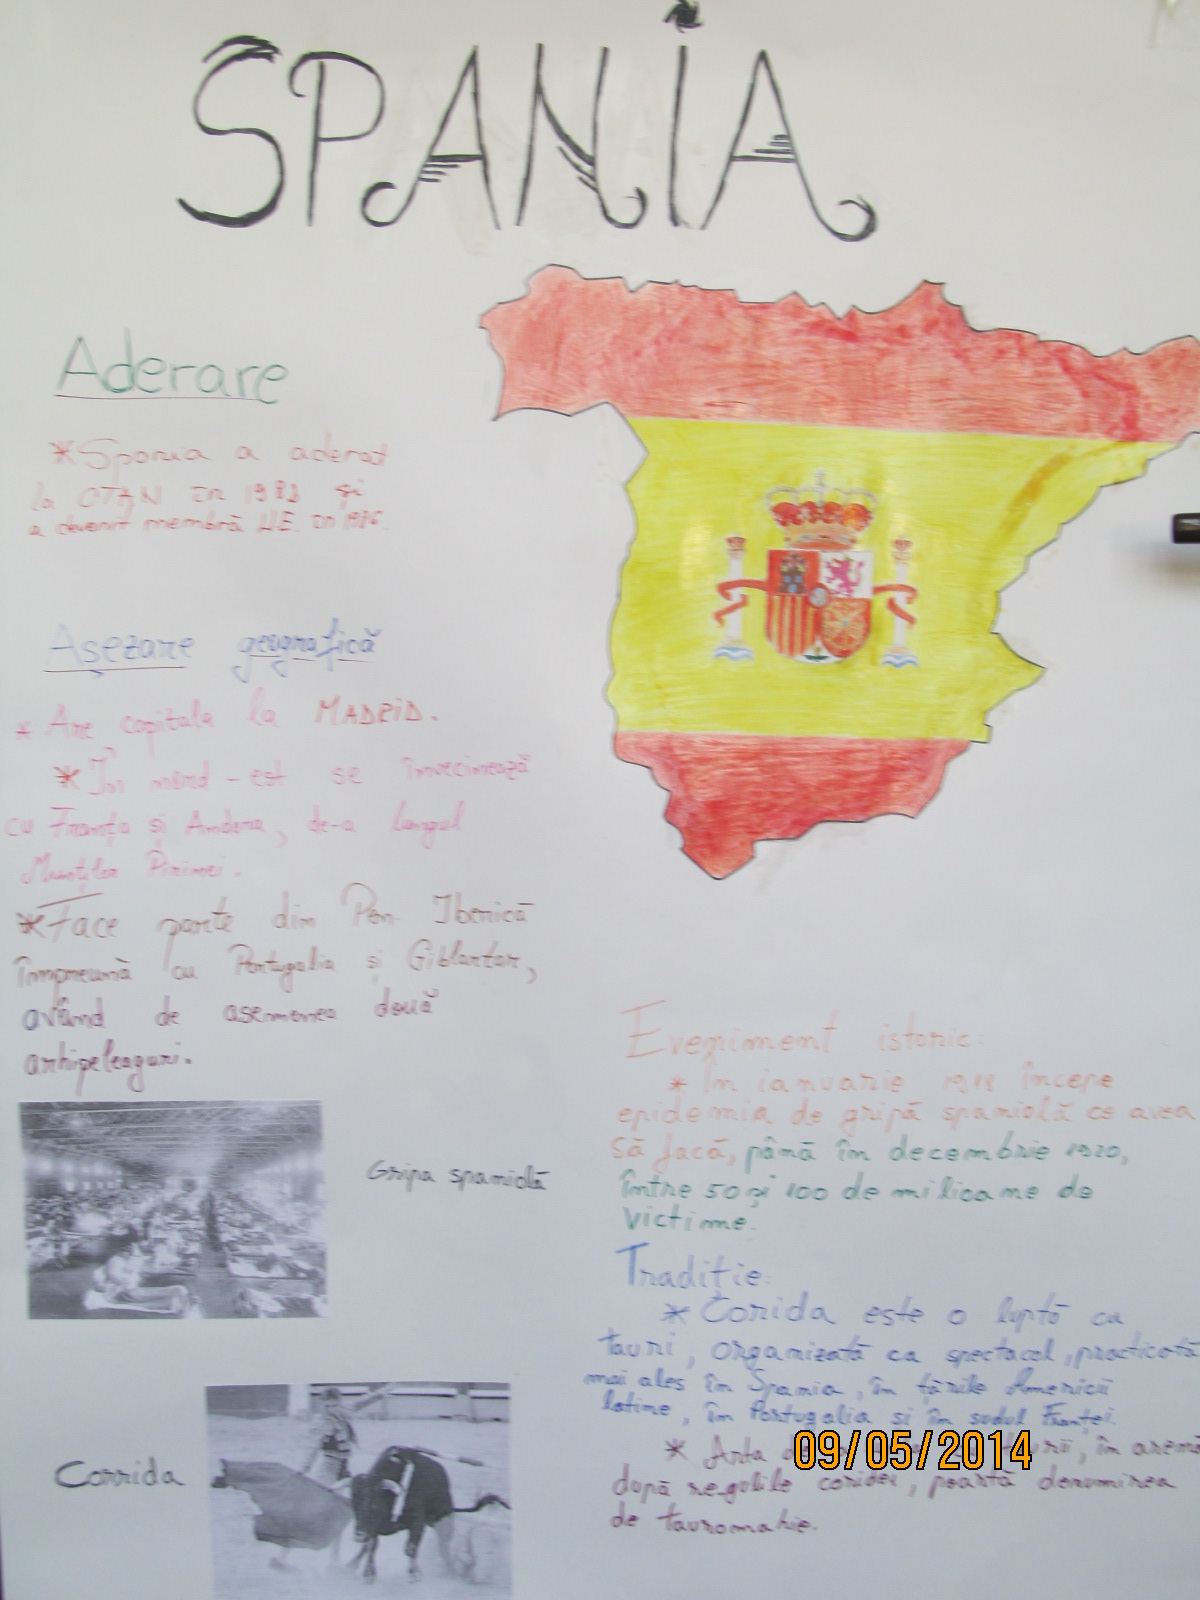 SPANIA
Aderare
*Spania a aderat
la OTAN în 1982 și
a devenit membră U.E. în 1986.
Așezare geografică
* Are capitala la MADRID.
*În nord-est se învecinează
cu Franța și Andora, de-a lungul
Munților Pirinei.
*Face parte din Pen. Iberică
împreună cu Portugalia și Giblartar,
având de asemenea două
arhipeleaguri.
Gripa spaniolă
Corrida
Eveniment istoric:
* În ianuarie 1918 începe
epidemia de gripă spaniolă ce avea
să facă, până în decembrie 1920,
între 50 și 100 de milioane de
victime.
Tradiție:
* Corida este o luptă cu
tauri, organizată ca spectacol, practicată
mai ales în Spania, în țările Americii
latine, în Portugalia si în sudul Franței.
* Arta de în arenă
după regulile coridei, poartă denumirea
de tauromahie.
09/05/2014